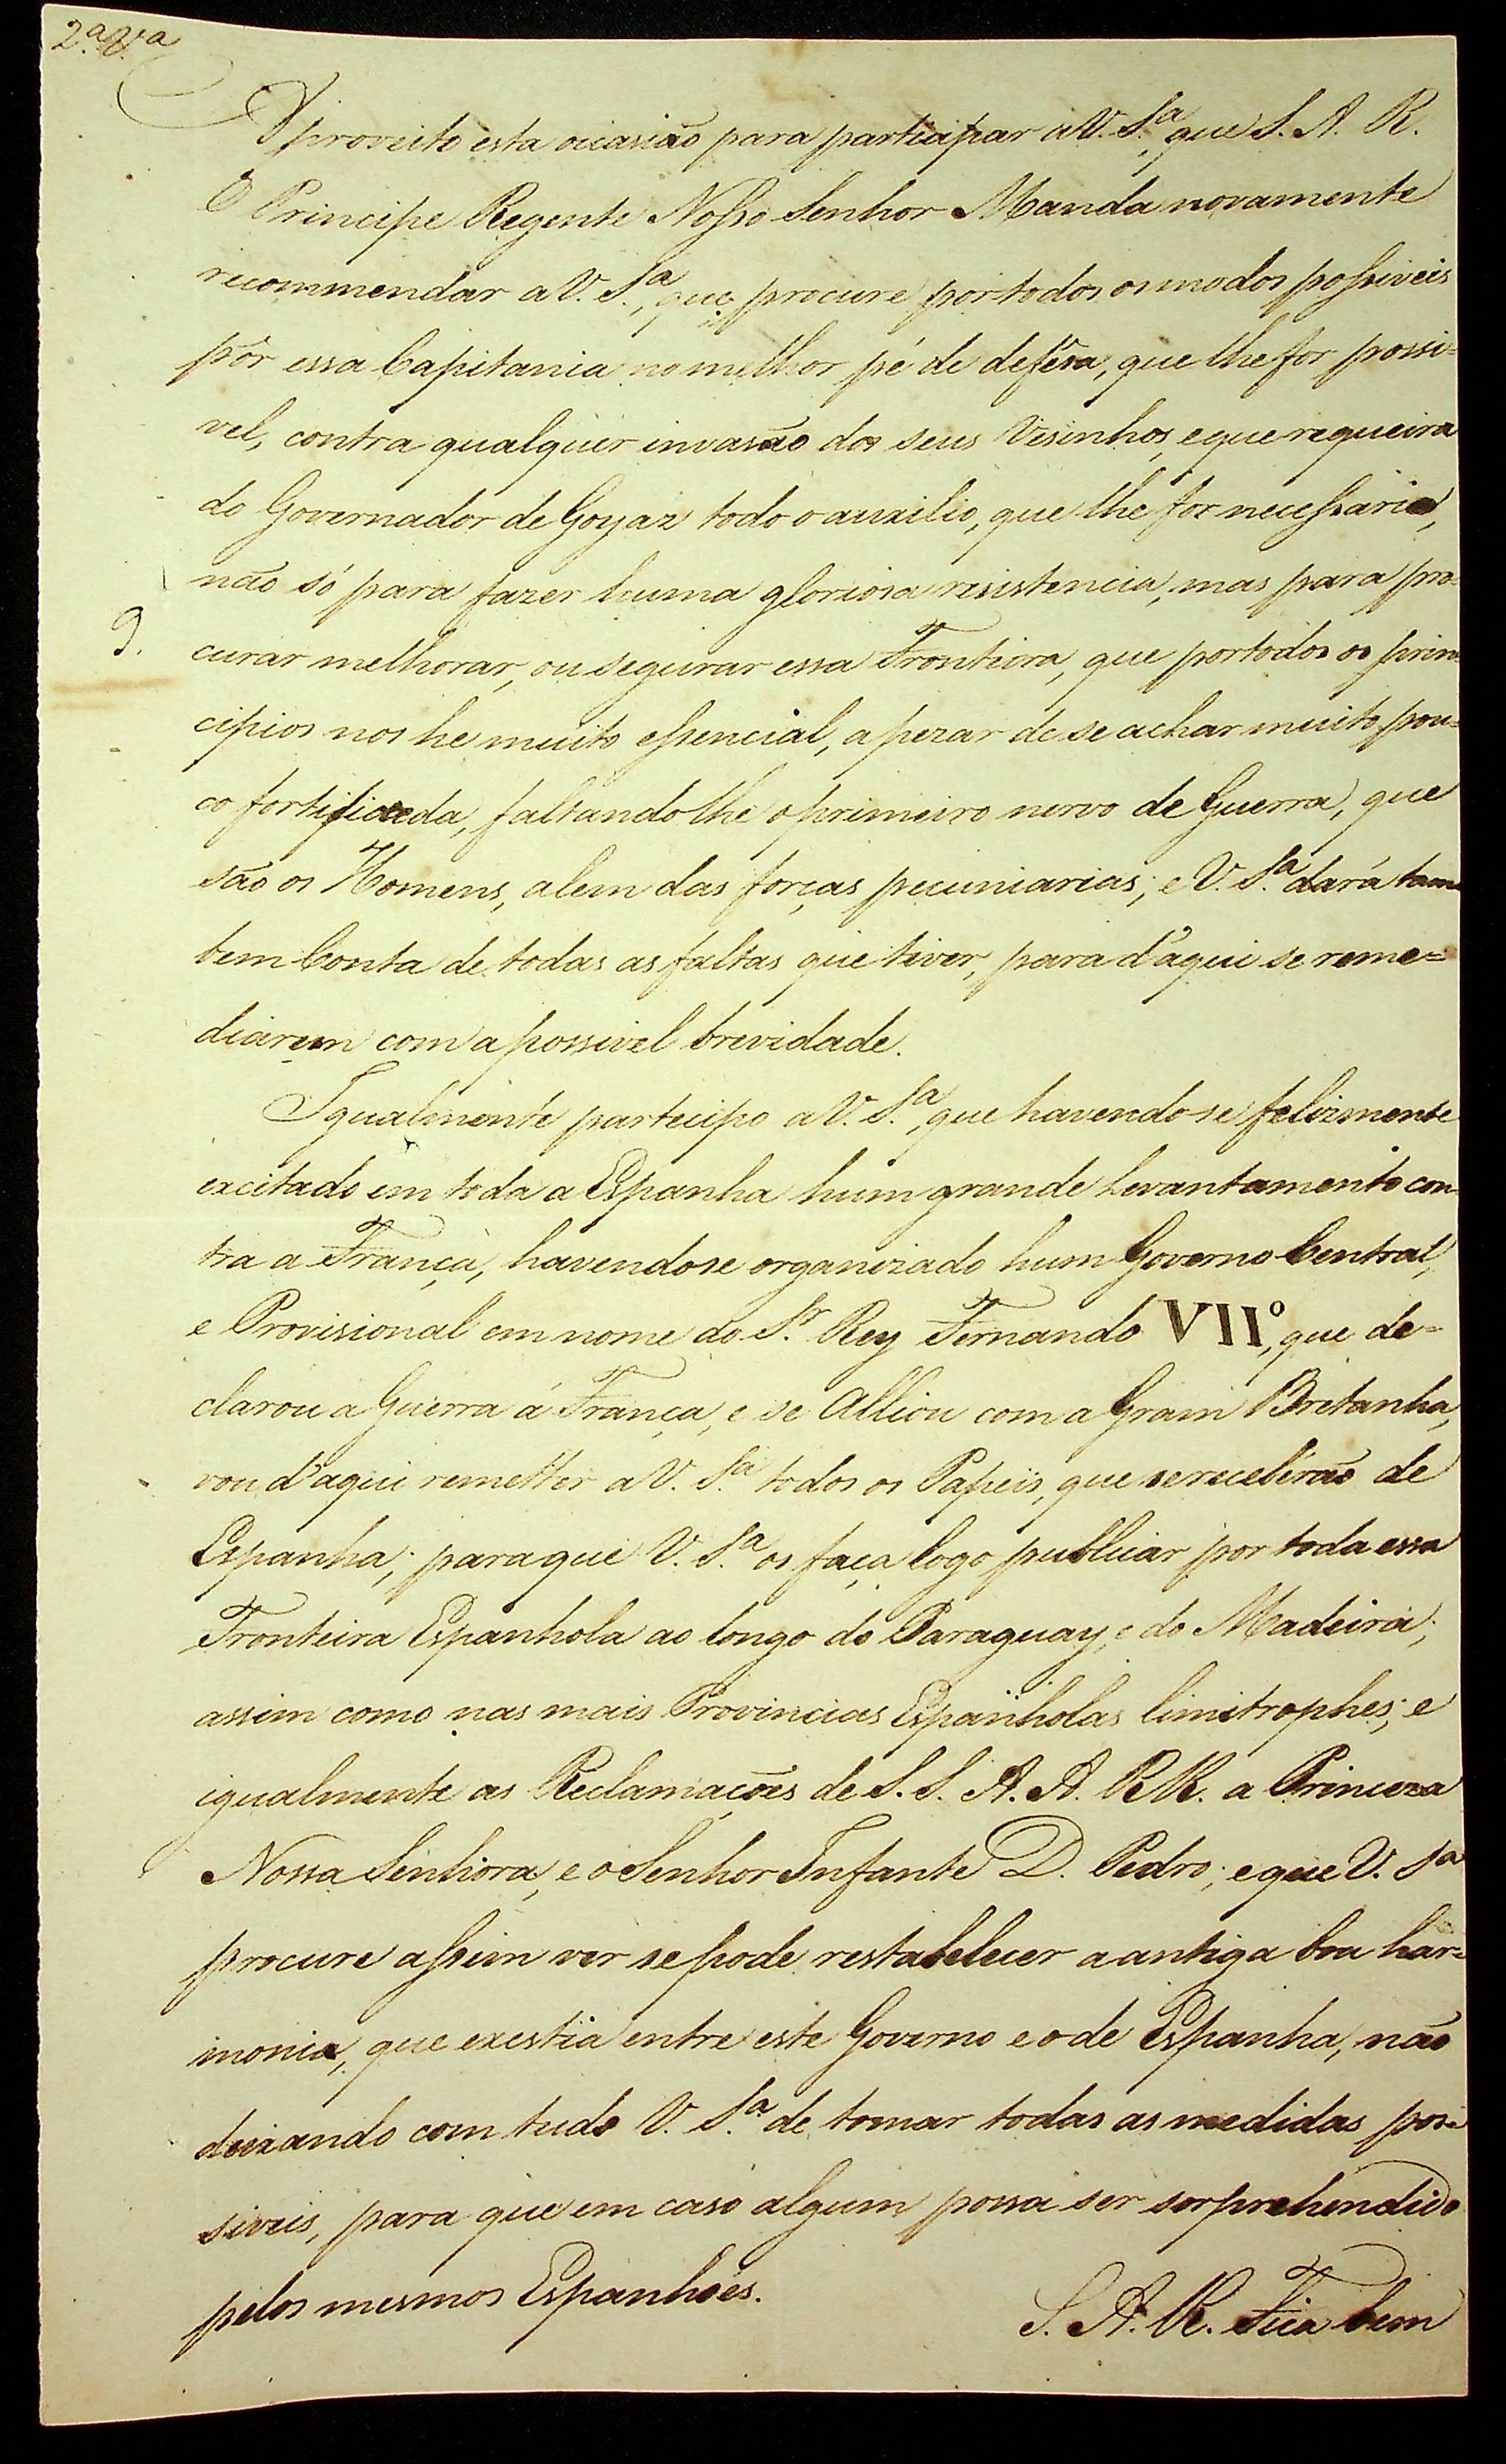 2.ª V.ª
Aproveito esta occasião para participar a V. S.ª, que S. A. R.
O Principe Regente Nosso Senhor Manda novamente
recommendar a V. S.ª, que procure por todos os modos possiveis
pôr essa Capitania no melhor pé de defeza, que lhe for possi=
vel, contra qualquer invasão dos seus Vesinhos, e que requeira
do Governador de Goyaz todo o auxilio, que lhe for necessario,
não só para fazer huma gloriosa resistencia, mas para pro=
9. curar melhorar, ou segurar essa Fronteira, que por todos os prin=
cipios nos he muito essencial, a pezar de se achar muito pou=
co fortificada, faltando lhe o primeiro nervo de Guerra, que
são os Homens, alem das forças pecuniarias; e V. S.ª dará tam=
bem Conta de todas as faltas que tiver, para d'aqui se reme=
diarem com a possivel brevidade.
Igualmente partecipo a V. S.ª, que havendo-se felizmente
excitado em toda a Espanha hum grande Levantamento con=
tra a França, havendo se organizado hum Governo Central,
e Provisional em nome do S.r Rey Fernando VII.º, que de=
clarou a Guerra á França, e se Alliou com a Gram Bretanha,
vou d'aqui remetter a V. S.ª todos os Papeis, que se receberão de
Espanha; para que V. S.ª os faça logo publicar por toda essa
Fronteira Espanhola ao longo do Paraguay, e do Madeira;
assim como nas mais Provincias Espanholas limitrophes; e
igualmente as Reclamações de S. S. A. A. R R. a Princeza
Nossa Senhora, e o Senhor Infante D. Pedro; e que V. S.ª
procure assim ver se pode restabelecer a antiga boa har=
monia, que exestia entre este Governo e o de Espanha, não
deixando com tudo V. S.ª de tomar todas as medidas pos=
siveis, para que em caso algum possa ser sorprehendido
pelos mesmos Espanhóes.
S. A. R. Fica bem